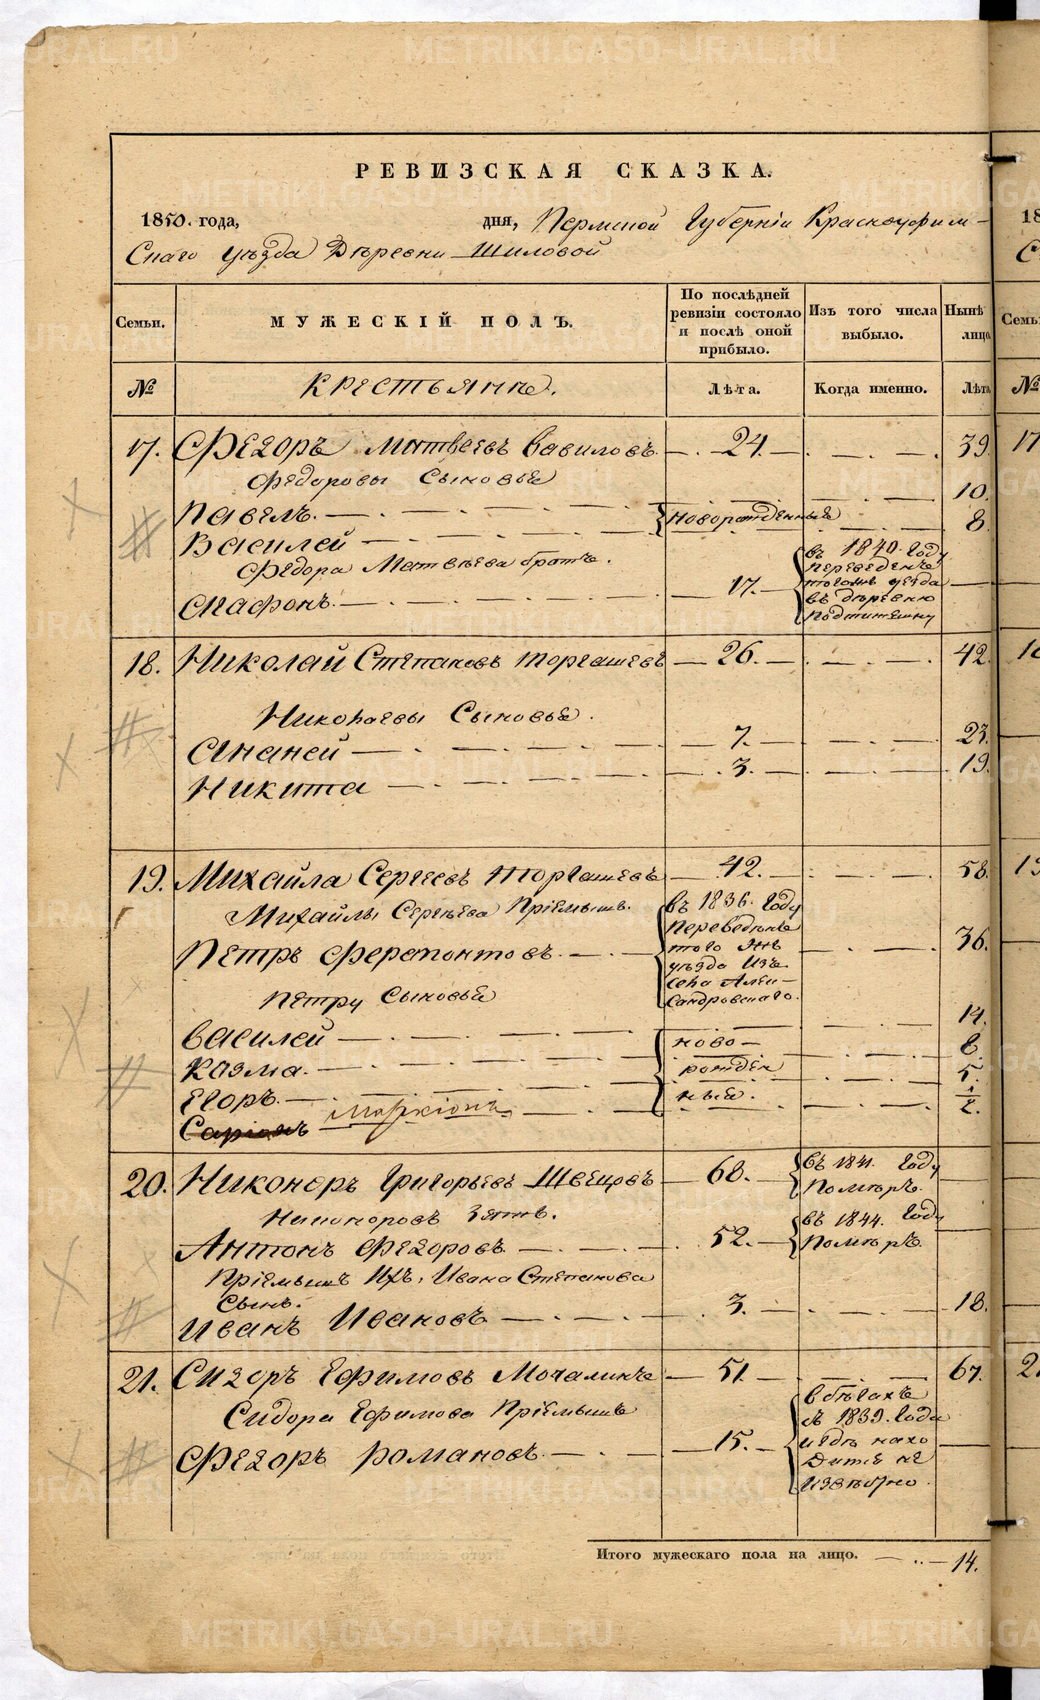 РЕВИЗСКАЯ СКАЗКА.
1850. года, дня, Пермской Губерніи Красноуфим-
Скаго уѣзда Дѣревни Шиловой
Семьи. МУЖЕСКІЙ ПОЛЪ. По послѣдней ревизіи состояло и послѣ оной прибыло. Изъ того числа выбыло. Нынѣ лицо
№ Крестьянѣ. Лѣта. Когда именно. Лѣта
17. Федоръ Матвеевъ Вавиловъ 24. 39.
Федоровы Сыновья
Павелъ 10.
новорожденныя
Василей 8.
Федора Матвѣева братъ.
Агафонъ 17. въ 1840. году переведенъ тогожъ уезда въ дѣревню
18. Николай Степановъ Торгашевъ 26. 42.
Николаевы Сыновья.
Ананей 7. 23.
Никита 3. 19.
19. Михайла Сергеевъ Торгашевъ 42. 58.
Михайлы Сергѣева Пріемышъ.
Петръ Ферапонтовъ 36.
въ 1836. году переведѣнъ того жъ уѣзда изъ села Алек-сандровскаго.
Петру Сыновья
Василей 14.
Козма 8.
Егоръ 5.
ново-рожден ныя.
Маркіонъ 1/2.
20. Никоноръ Григорьевъ Швецовъ 68. въ 1841. году Помѣръ.
Никоноровъ Зять.
Антонъ Федоровъ 52. въ 1844. году Помѣръ.
Пріемышъ Ихъ, Ивана Степанова
Сынъ.
Иванъ Ивановъ 3. 18.
21. Сидоръ Ефимовъ Мочалинъ 51. 67.
Сидора Ефимова Пріемышъ
Федоръ Романовъ 15. в бѣгахъ съ 1839. года и гдѣ нахо дится не извѣстно.
Итого мужескаго пола на лицо. 14.
METRIKI.GASO-URAL.RU